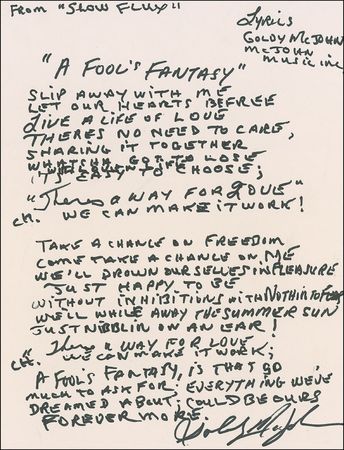 FROM "SLOW FLUX"
LYRICS
GOLDY McJOHN
McJOHN
MUSIC INC
"A FOOL'S FANTASY"
SLIP AWAY WITH ME
LET OUR HEARTS BE FREE
LIVE A LIFE OF LOVE
THERES NO NEED TO CARE,
SHARING IT TOGETHER
WHATCHA GOT TO LOSE
IT'S EASY TO CHOOSE;
"Theres a WAY FOR LOVE"
CH. WE CAN MAKE IT WORK!
TAKE A CHANCE ON FREEDOM
COME TAKE A CHANCE ON ME
WE'LL DROWN OURSELVES IN PLEASURE
JUST HAPPY TO BE
WITHOUT INHIBITIONS WITH NOTHIN TO FEAR
WE'LL WHILE AWAY THE SUMMER SUN
JUST NIBBLIN ON AN EAR!
"Theres a WAY FOR LOVE
CH. WE CAN MAKE IT WORK;
A FOOL'S FANTASY, IS THAT SO
MUCH TO ASK FOR, EVERYTHING WE'VE
DREAMED ABOUT, COULD BE OURS
FOREVER MORE.
Goldy McJohn